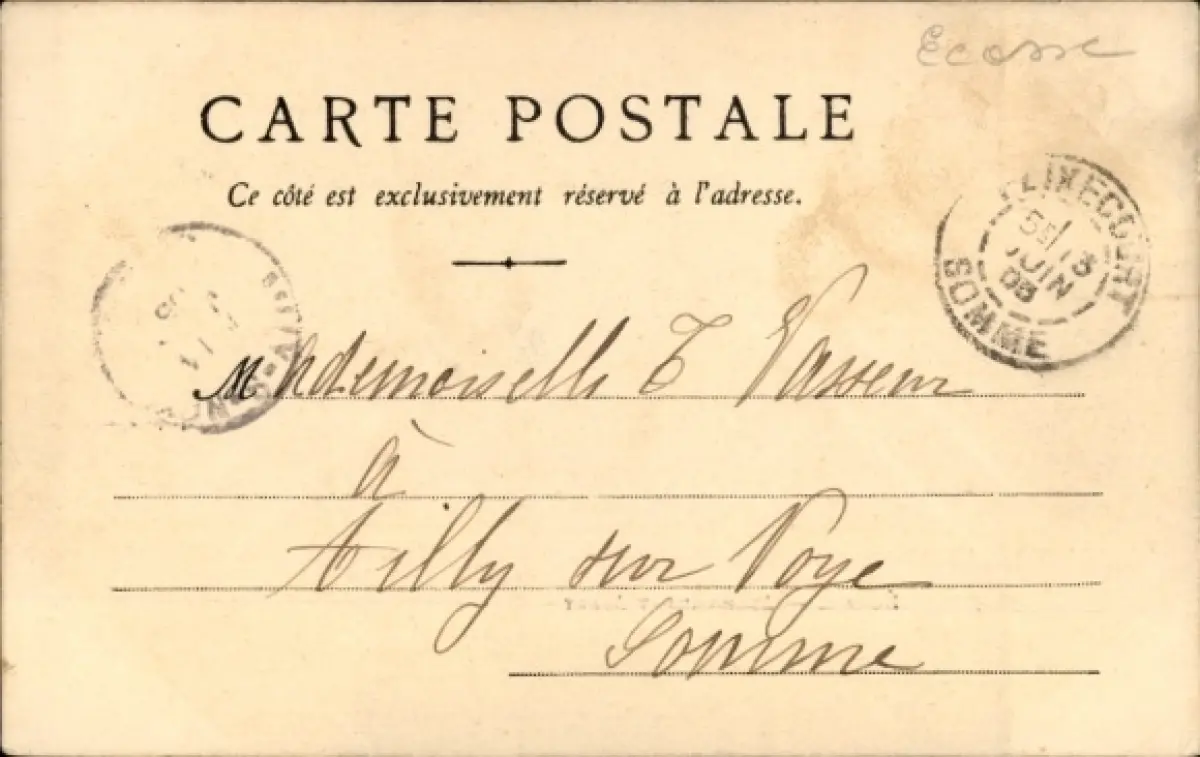 Ecosse
CARTE POSTALE
Ce côté est exclusivement réservé à l'adresse.
FLIXECOURT
5E / 13
JUIN
03
SOMME
Mademoiselle T Vasseur
à
Ailly sur Noye
Somme